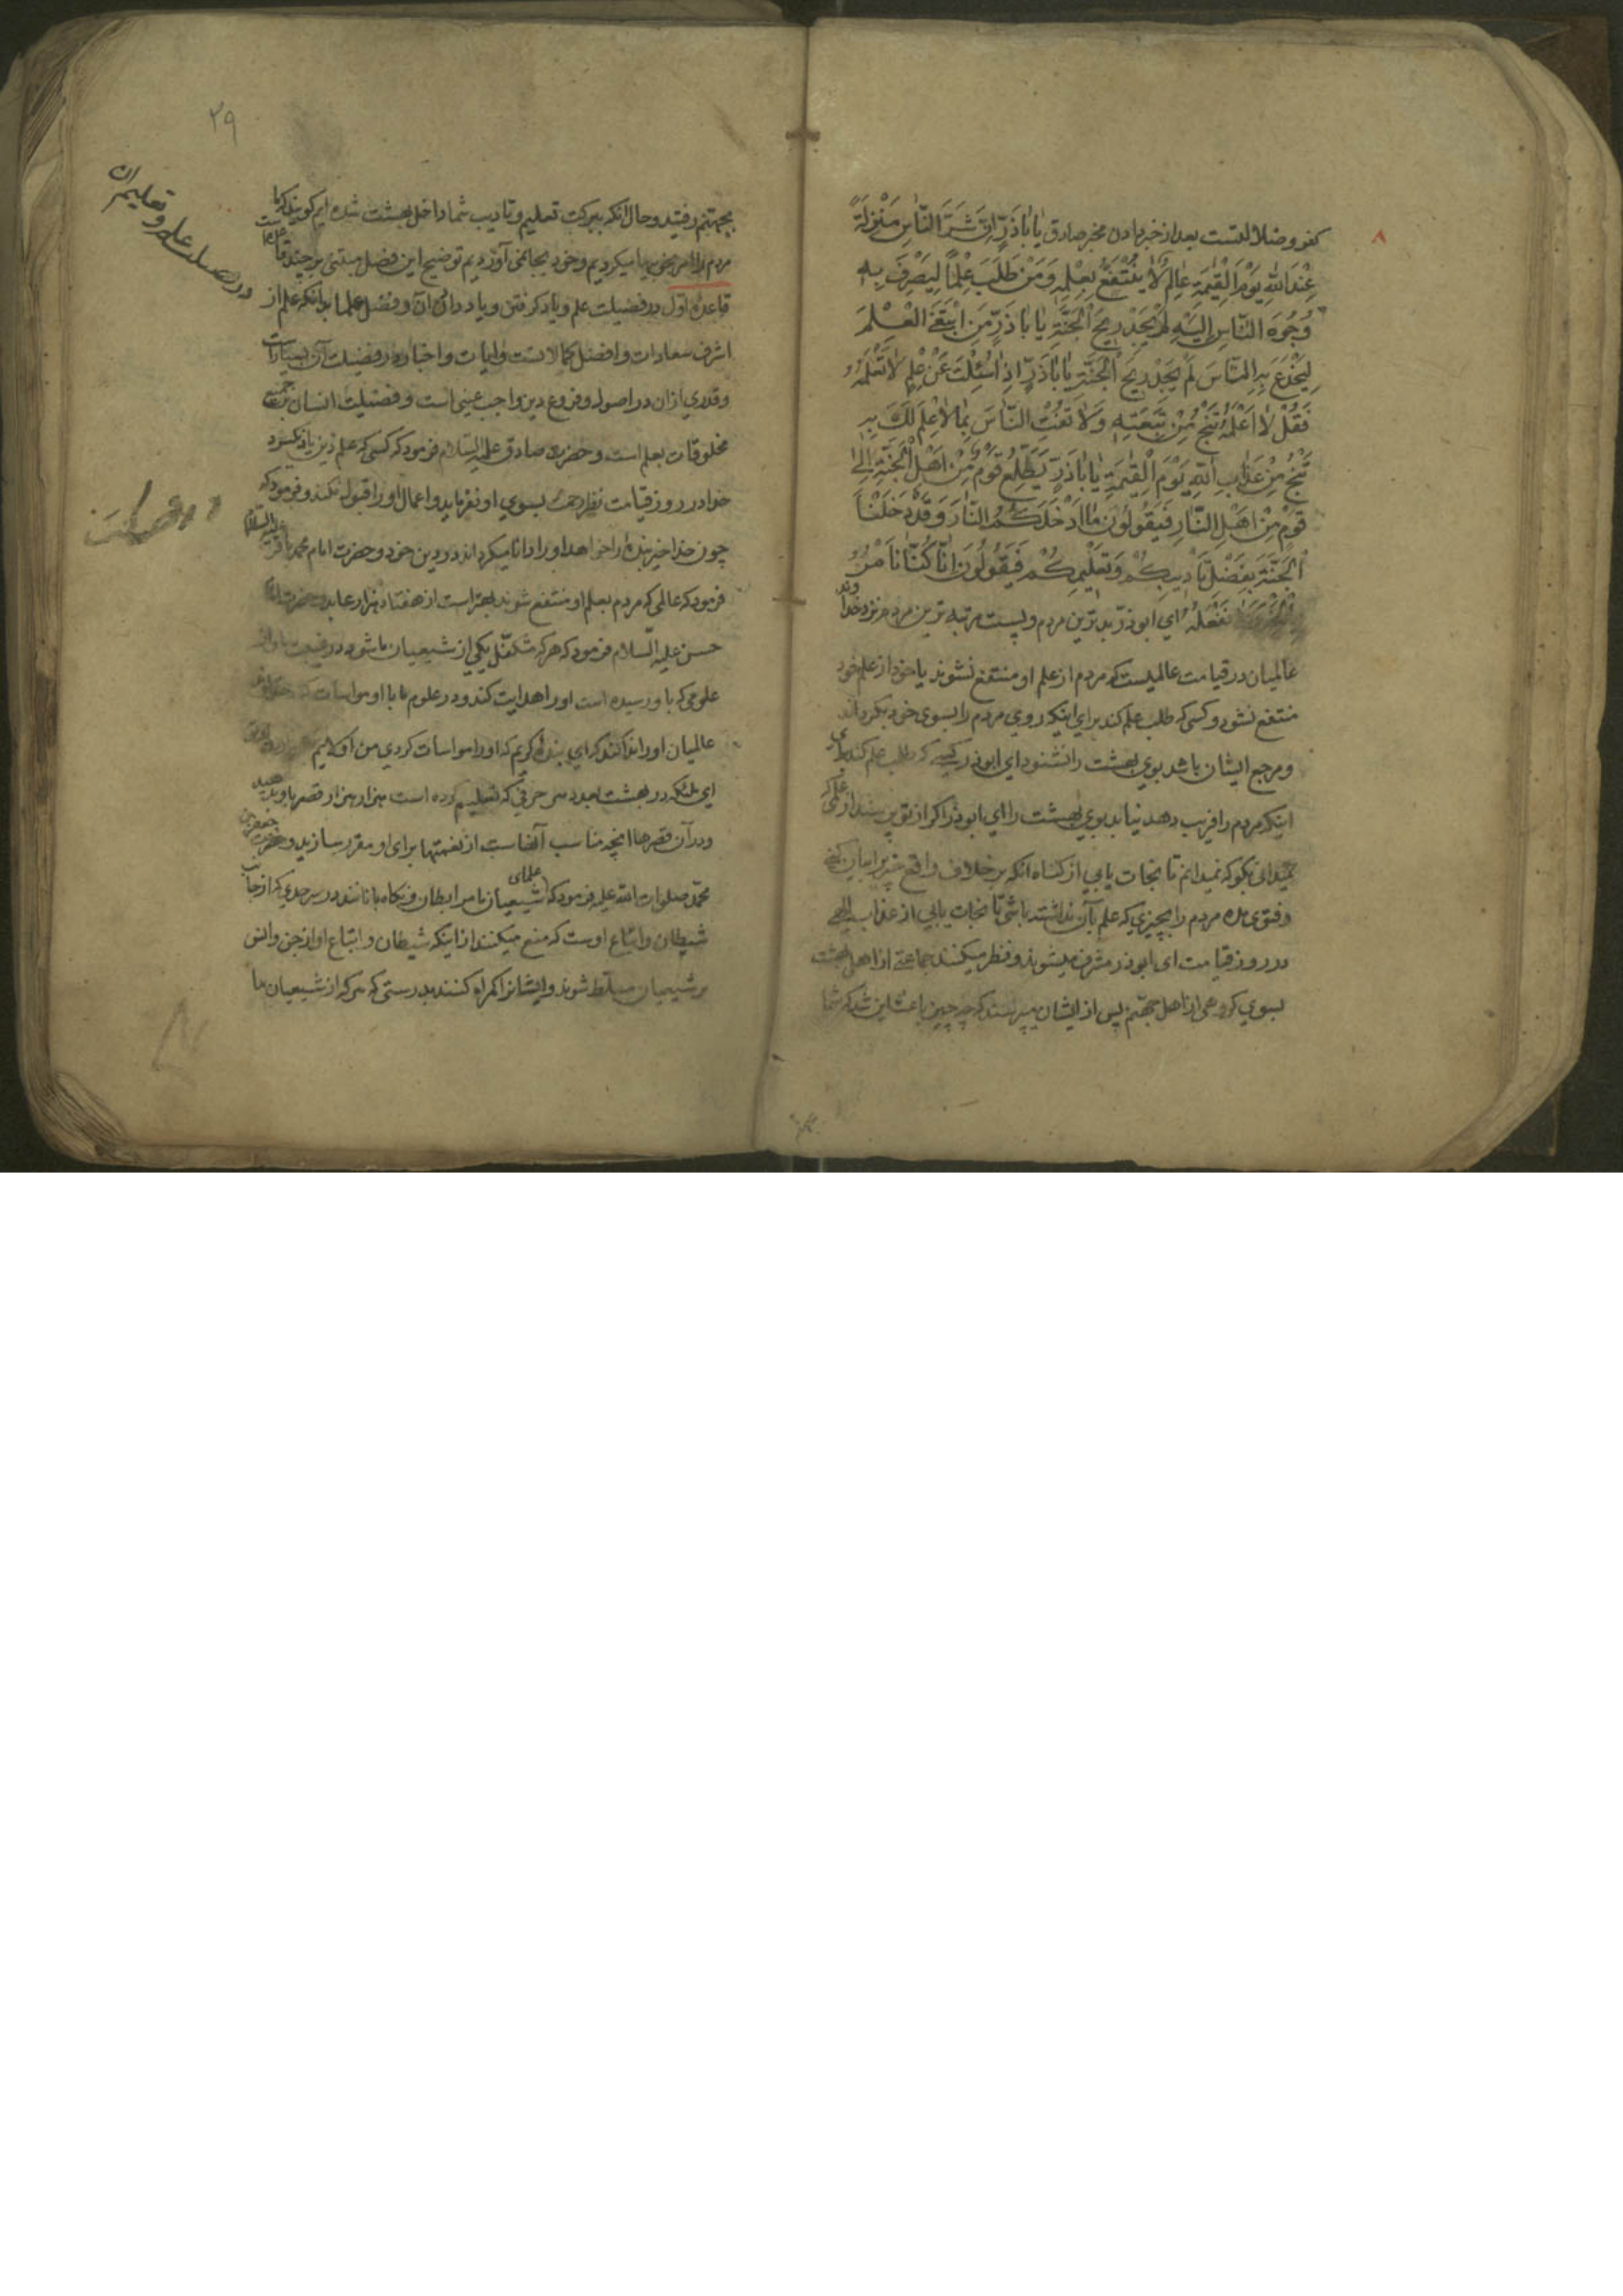 ۸
كفر و ضلالتست بعد از خبر دادن مخبر صادق يٰا اَبٰاذَرٍّ اِنَّ شَرَّ النّٰاسِ مَنْزِلَةً
عِنْدَ اللّٰهِ يَوْمَ الْقِيٰمَةِ عٰالِمٌ لاٰ يُنْتَفَعُ بِعِلْمِهِ وَمَنْ طَلَبَ عِلْمًا لِيَصْرِفَ بِهِ
وُجُوهَ النّٰاسِ اِلَيْهِ لَمْ يَجِدْ رِيحَ الْجَنَّةِ يٰا اَبٰاذَرٍّ مَنِ ابْتَغَى الْعِلْمَ
لِيَخْدَعَ بِهِ النّٰاسَ لَمْ يَجِدْ رِيحَ الْجَنَّةِ يٰا اَبٰاذَرٍّ اِذٰا سُئِلْتَ عَنْ عِلْمٍ لاٰ تَعْلَمُهُ
فَقُلْ لاٰ اَعْلَمُهُ تَنْجُ مِنْ تَبِعَتِهِ وَلاٰ تُفْتِ النّٰاسَ بِمٰا لاٰ عِلْمَ لَكَ بِهِ
تَنْجُ مِنْ عَذٰابِ اللّٰهِ يَوْمَ الْقِيٰمَةِ يٰا اَبٰاذَرٍّ يَطَّلِعُ قَوْمٌ مِنْ اَهْلِ الْجَنَّةِ اِلىٰ
قَوْمٍ مِنْ اَهْلِ النّٰارِ فَيَقُولُونَ مٰا اَدْخَلَكُمُ النّٰارَ وَقَدْ دَخَلْنَا
الْجَنَّةَ بِفَضْلِ تَأْدِيبِكُمْ وَتَعْلِيمِكُمْ فَيَقُولُونَ اِنّٰا كُنّٰا نَأْمُرُ
نَفْعَلُهُ اى ابوذر بدترين مردم و پست مرتبه ترين مردم نزد خداوند
عالميان در قيامت عالميست كه مردم از علم او منتفع نشوند يا خود از علم خود
منتفع نشود و كسى كه طلب علم كند براى اينكه روى مردم را بسوى خود بگرداند
و مرجع ايشان باشد بوى بهشت را نشنود اى ابوذر كسى كه طلب علم كند براى
اينكه مردم را فريب دهد نيابد بوى بهشت را اى ابوذر اگر از تو پرسند از علمى كه
نميدانى بگو كه نميدانم تا نجات يابى از گناه آنكه بر خلاف واقع چيزيرا بيان كنى
و فتوى مده مردم را بچيزى كه علم بآن نداشته باشى تا نجات يابى از عذاب الهى
در روز قيامت اى ابوذر مشرف ميشوند و نظر ميكنند جماعتى از اهل بهشت
بسوى گروهى از اهل جهنم پس از ايشان ميپرسند كه چه چيز باعث اين شد كه شما
۲۹
در فضيلت علم و تعليم آن
بجهنم رفتيد و حال آنكه ببركت تعليم و تاديب شما داخل بهشت شده ايم گويند كه ما
مردم را امر بخوبيها ميكرديم و خود بجا نمى آورديم توضيح اين فصل مبتنى بر چند قاعده است
قاعده اول در فضيلت علم و ياد گرفتن و ياد دادن آن و فضل علما بدانكه علم از
اشرف سعادات و افضل كمالاتست و آيات و اخبار در فضيلت آن بسيار است
و قدرى از آن در اصول و فروع دين واجب عينى است و فضيلت انسان بر جميع
مخلوقات بعلم است و حضرت صادق عليه السلام فرمود كه كسى كه علم دين ياد نگيرد
خدا در روز قيامت نظر رحمت بسوى او نفرمايد و اعمال او را قبول نكند و فرمود كه
چون خدا خير بنده را خواهد او را دانا ميگرداند در دين خود و حضرت امام محمد باقر عليه السلام
فرمود كه عالمى كه مردم بعلم او منتفع شوند بهتر است از هفتاد هزار عابد و حضرت امام
حسن عليه السلام فرمود كه هر كه متكفل يكى از شيعيان ما شود در غيبت ما و از
علومى كه باو رسيده است او را هدايت كند و در علوم ما با او مواسات كند
عالميان او را ندا كند كه اى بنده كريم كه او را مواسات كردى من اولايم
اى ملئكه در بهشت بعدد هر حرفى كه تعليم كرده است هزار هزار قصر باو بدهيد
و در آن قصرها آنچه مناسب آنهاست از نعمتها براى او مقرر سازيد و حضرت جعفر بن
محمد صلوات الله عليه فرمود كه علماى شيعيان ما مرابطان و نگاه بانانند در سرحدى كه از جانب
شيطان و اتباع اوست كه منع ميكنند از اينكه شيطان و اتباع او از جن و انس
بر شيعيان مسلط شوند و ايشانرا گمراه كنند بدرستى كه هر كه از شيعيان ما